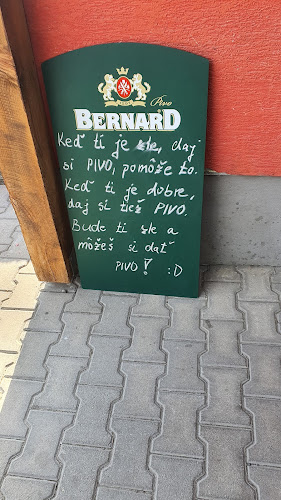 Pivo
BERNARD
Keď ti je zle, daj
si PIVO, pomôže to.
Keď ti je dobre,
daj si tiež PIVO.
Bude ti zle a
môžeš si dať
PIVO! :D